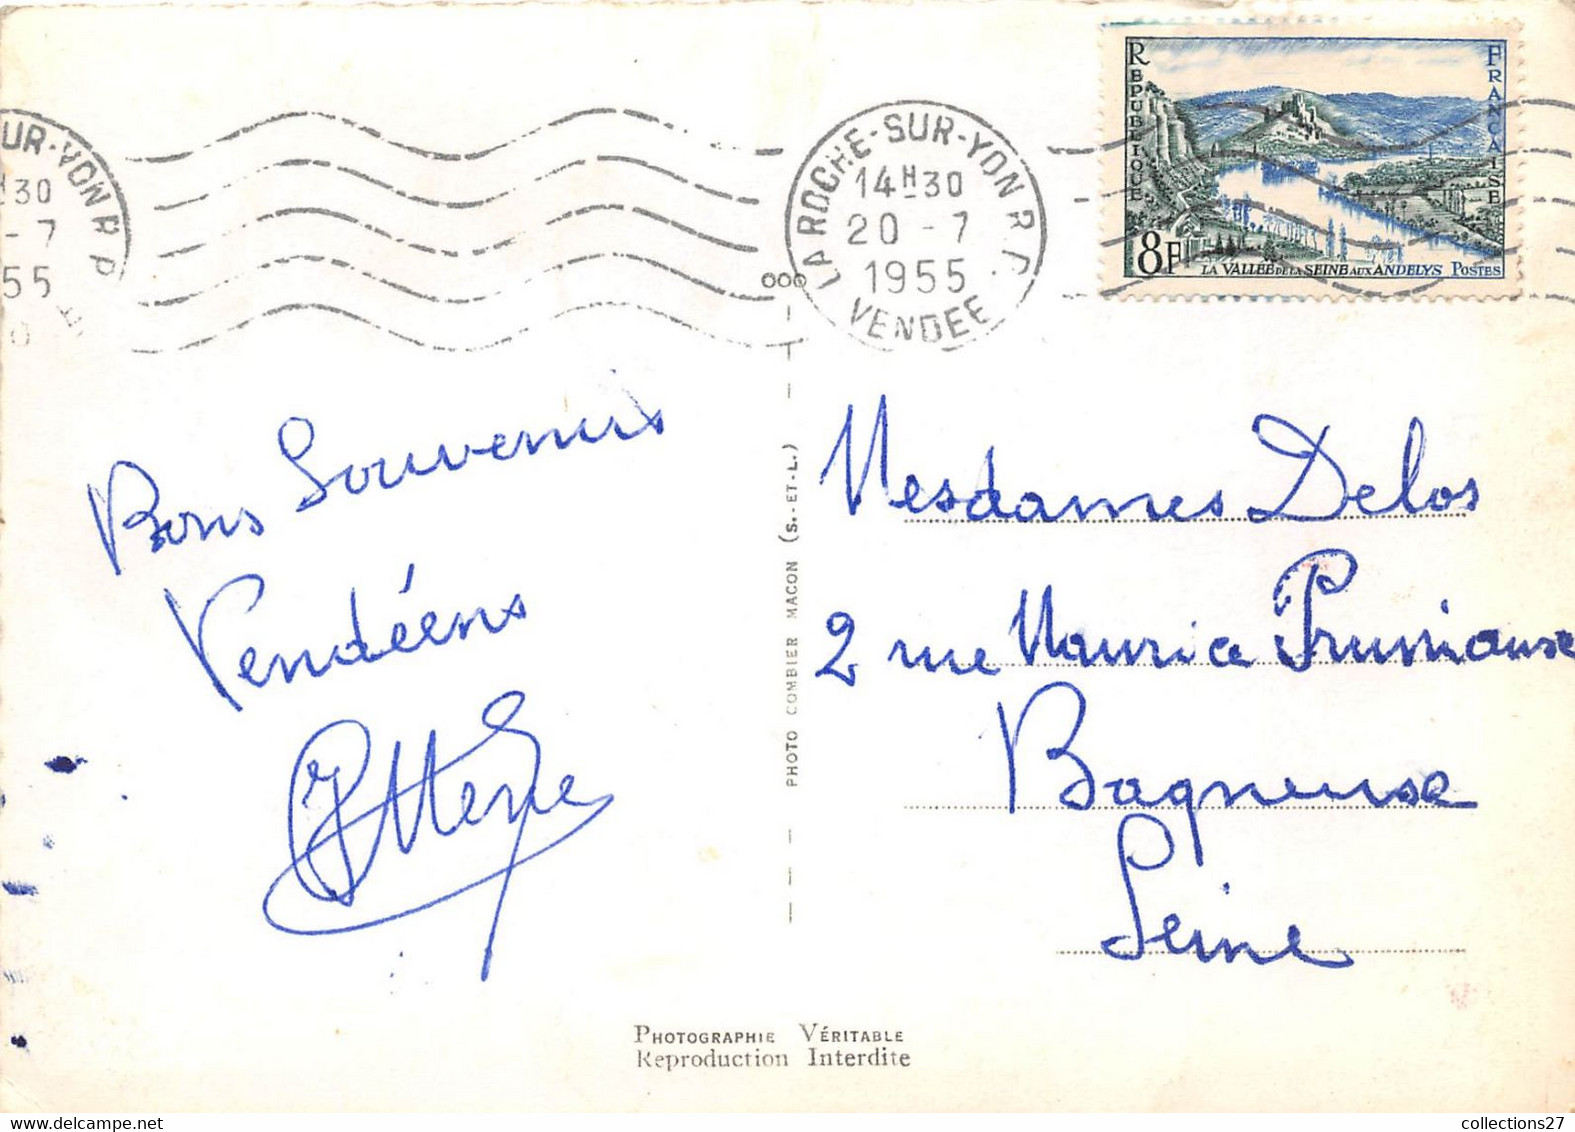 SUR-YON R P
H30
-7
55
LA ROCHE-SUR-YON R.P.
14H30
20-7
1955
VENDEE
RÉPUBLIQUE FRANÇAISE
8F
LA VALLÉE DE LA SEINE AUX ANDELYS POSTES
ooo
Bons Souvenirs
Vendéens
PHOTO COMBIER MACON (S.-ET-L.)
Mesdames Delos
2 rue Maurice
Bagneuse
Seine
PHOTOGRAPHIE VÉRITABLE
Reproduction Interdite
collections27